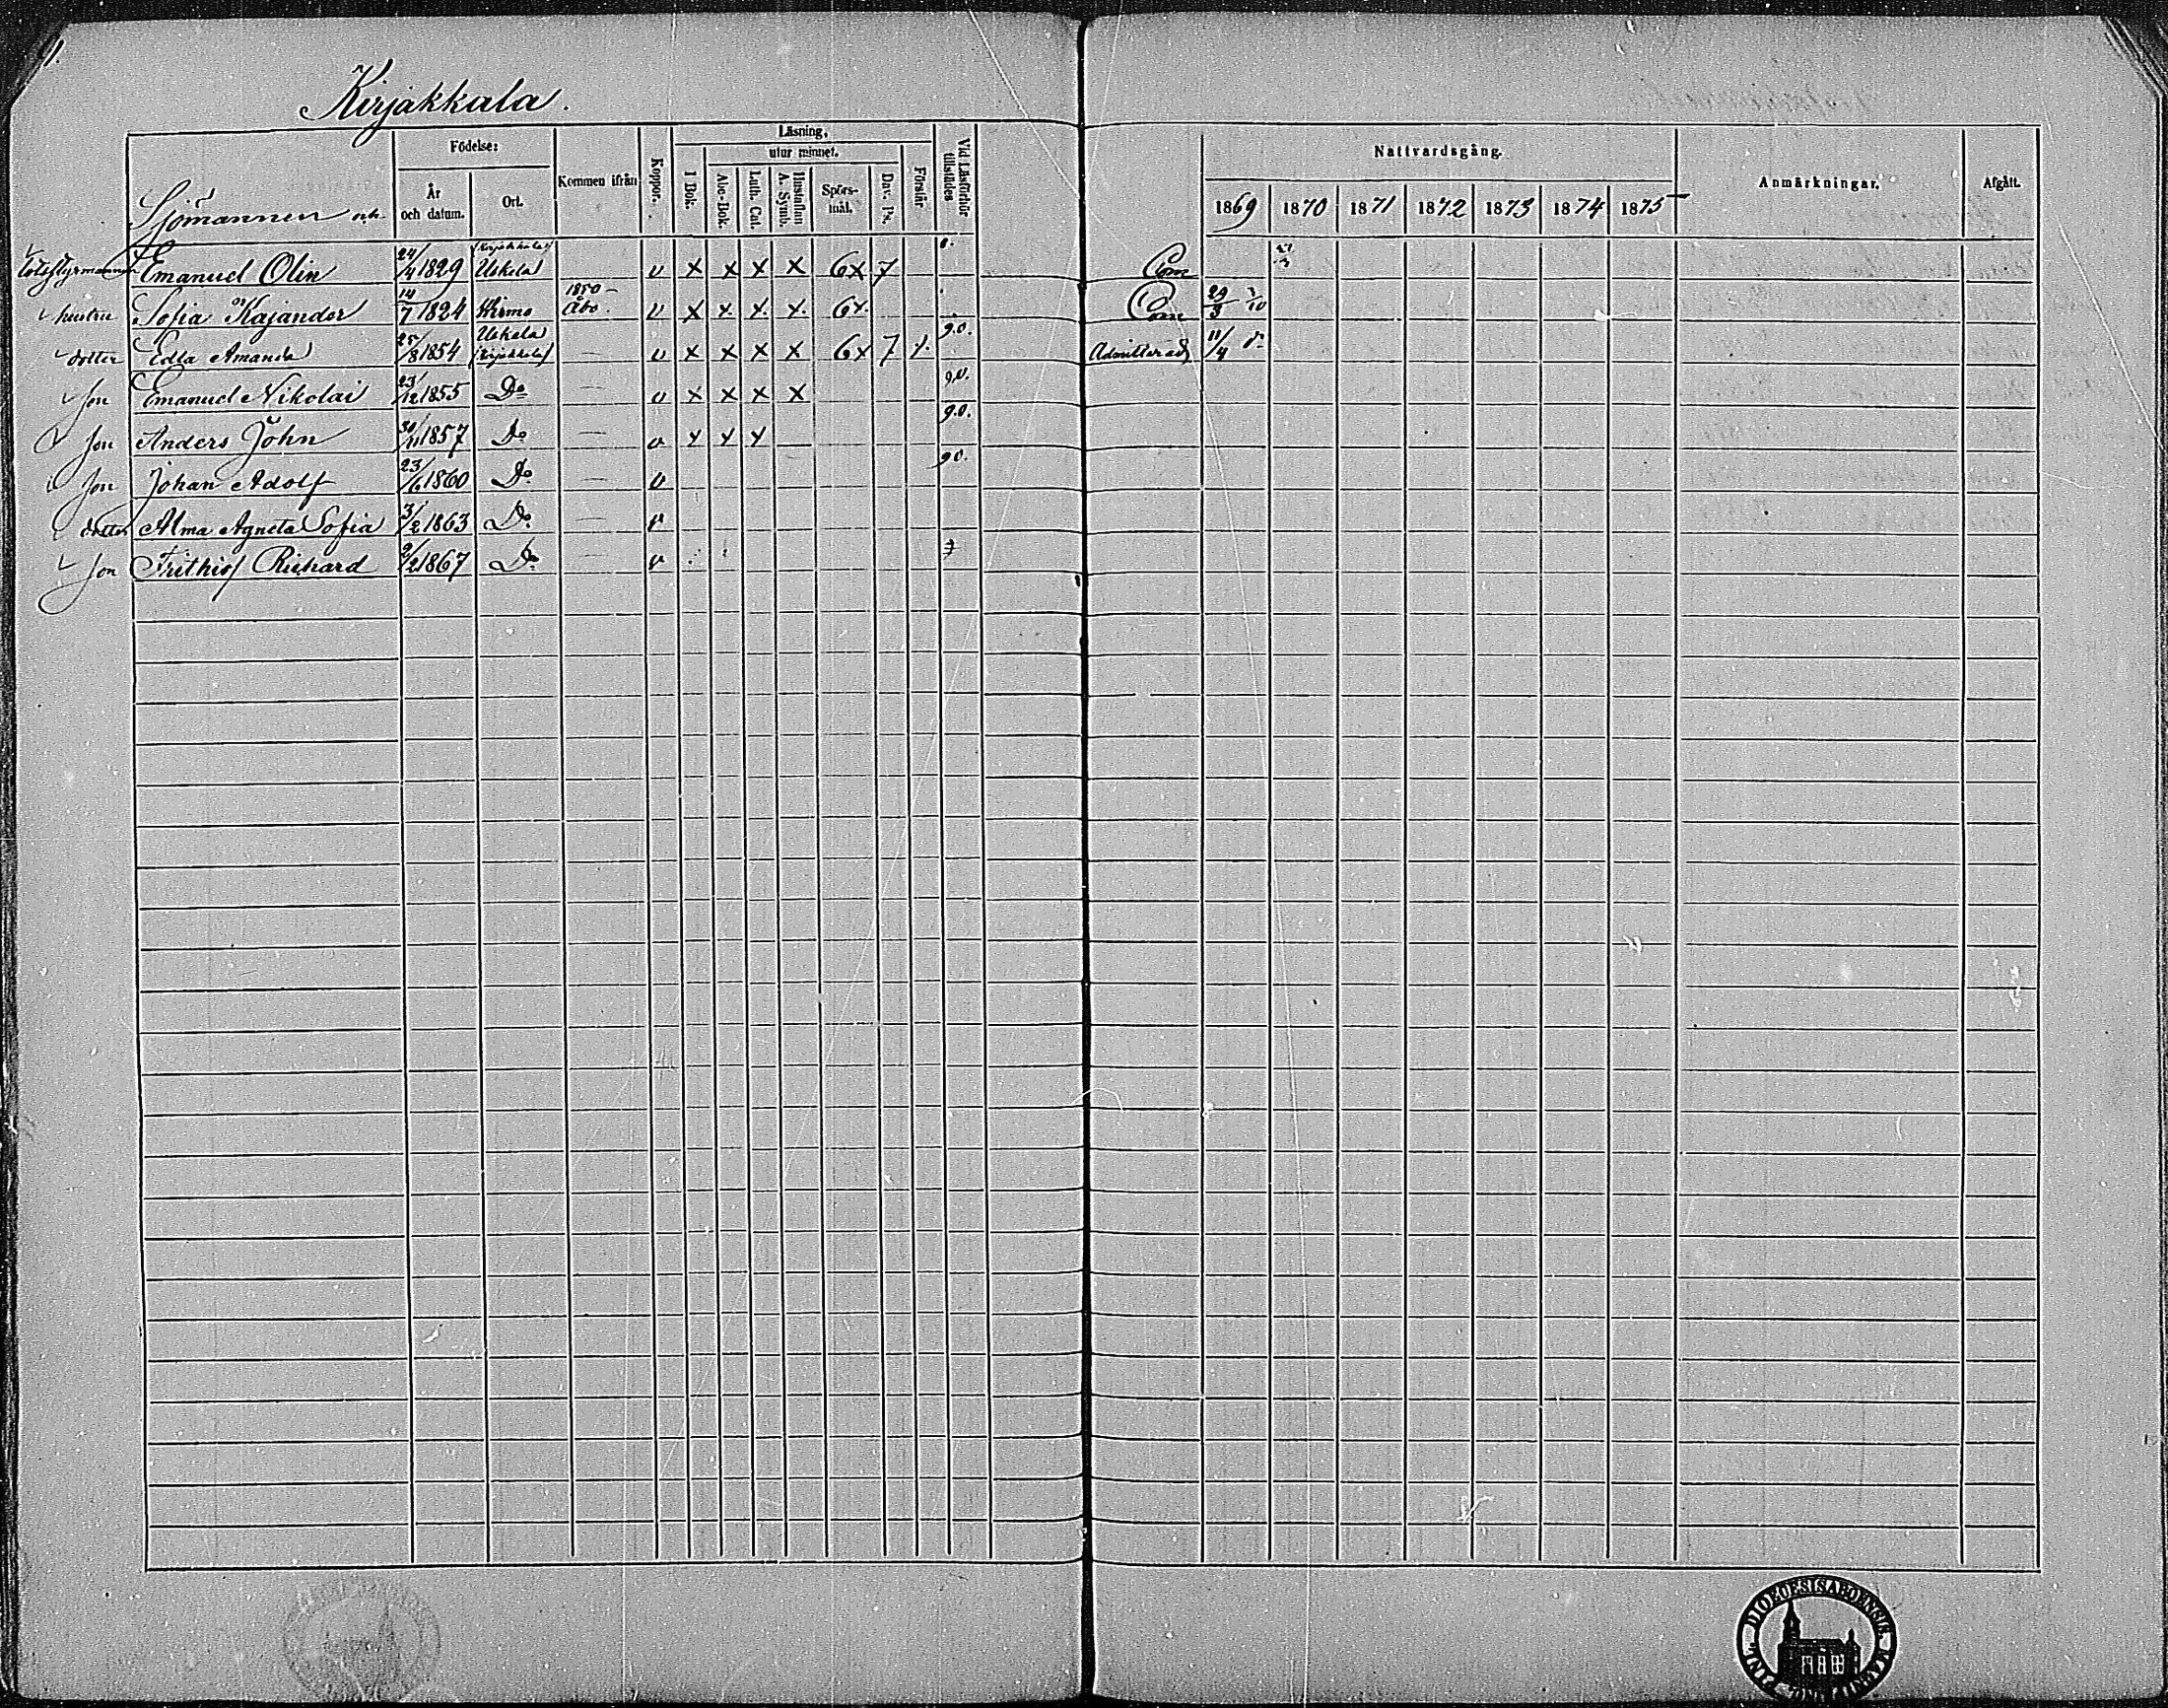 Kirjakkala.
Födelse: Läsning, Nattvardsgång. Anmärkningar. Afgått.
utur minnet.
År och datum. Ort. Kommen ifrån Koppor. I Bok. Abc-Bok. Luth. Cat. Hustaflan A. Symb. Spörs-mål. Dav. Ps. Förstår Vid Läsförhör tillstädes
1869 1870 1871 1872 1873 1874 1875
Sjömannen och
Emanuel Olin 24/4 1829 (Kirjakkala) Uskela v x x x x 6x 7 Com
hustru Sofia Kajander 14/7 1824 Kimo 1850 Åbo. v x x x x 6x. Com 29/3 3/10
dotter Edla Amanda 25/8 1854 Uskela (Kirjakkala) — v x x x x 6x 7 90. Admitterad 11/4
Son Emanuel Nikolai 23/12 1855 Do — v x x x x 90.
Son Anders John 30/11 1857 Do — v x x x 90.
Son Johan Adolf 23/6 1860 Do — v 90.
dotter Alma Agneta Sofia 3/2 1863 Do — v
Son Frithiof Richard 2/2 1867 Do — v
DIOECESIS ABOENSIS